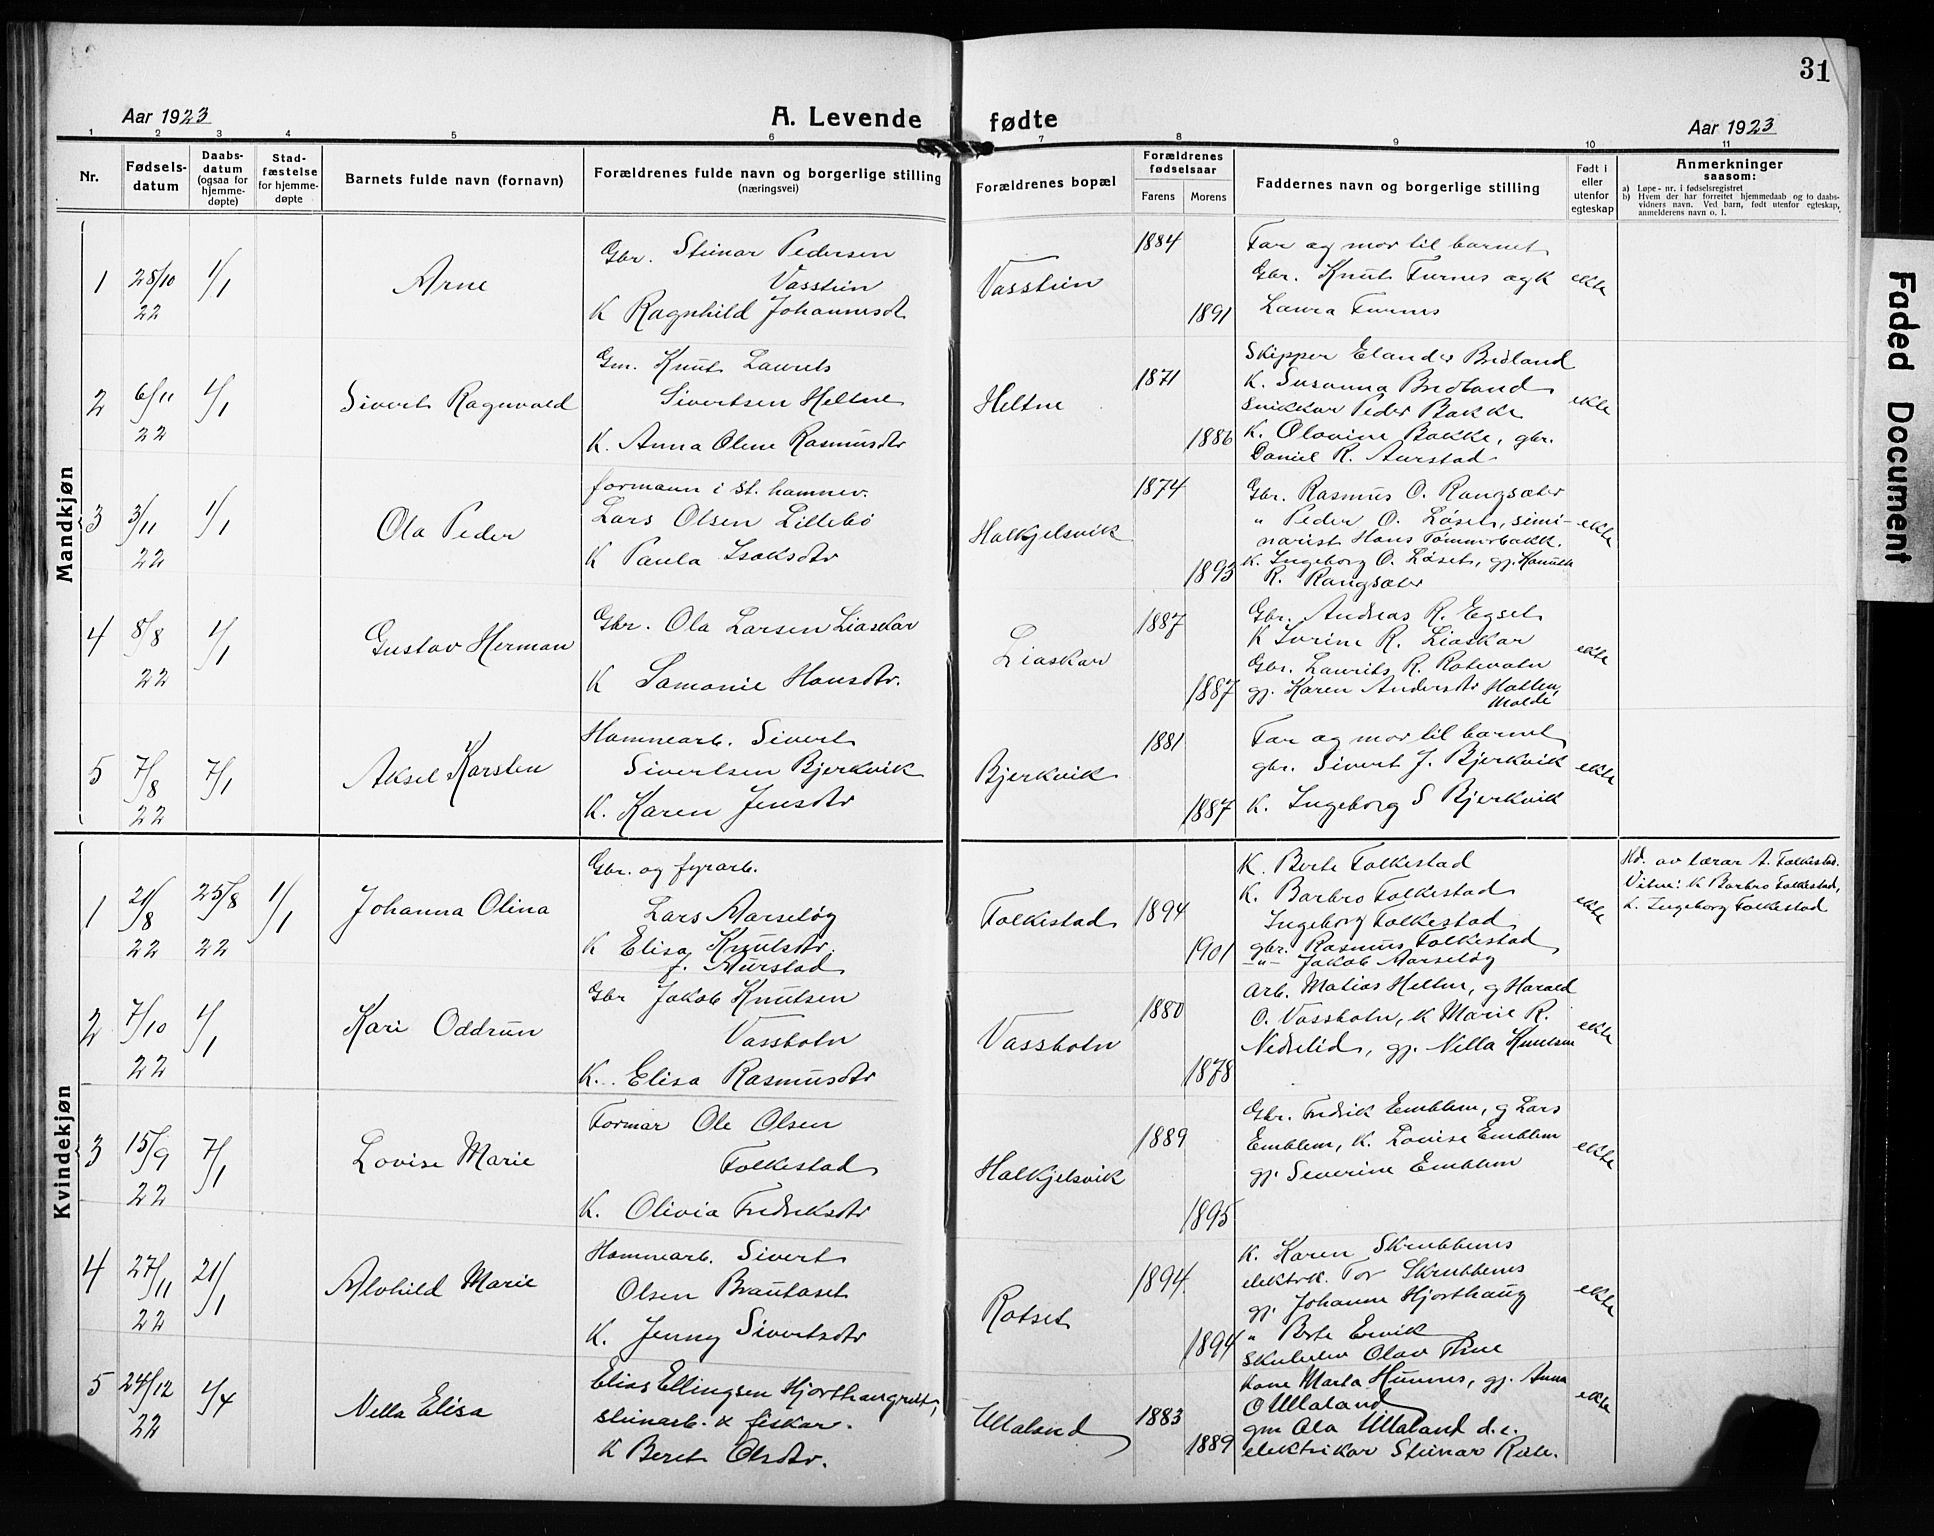 31
Aar 1923
A. Levende fødte
Aar 1923
1 2 3 4 5 6 7 8 9 10 11
Nr.
Fødsels-
datum
Daabs-
datum
(ogsaa for
hjemme-
døpte)
Stad-
fæstelse
for hjemme-
døpte
Barnets fulde navn (fornavn)
Forældrenes fulde navn og borgerlige stilling
(næringsvei)
Forældrenes bopæl
Forældrenes
fødselsaar
Farens Morens
Faddernes navn og borgerlige stilling
Født i
eller
utenfor
egteskap
Anmerkninger
saasom:
a) Løpe-nr. i fødselsregistret
b) Hvem der har forrettet hjemmedaab og to daabs-
vidners navn. Ved barn, født utenfor egteskap,
anmelderens navn o. l.
Faded Document
Mandkjøn
1
28/10
22
1/1
Arne
Gbr. Steinar Pedersen
Vasstein
K Ragnhild Johannesdt
Vasstein
1884
1891
Far og mor til barnet
Gbr. Knut Furnes og k
Laura Furnes
ekte
2
6/11
22
1/1
Sivert Ragnvald
Gm. Knut Laurits
Sivertsen Heltne
K. Anna Oline Rasmusdtr
Heltne
1871
1886
Skipper Elander Bredland
K. Susanna Bredland
Snikkar Peder Bakke
K. Olovine Bakke, gbr.
Daniel R. Aurstad
ekte
3
3/11
22
1/1
Ola Peder
formann i st. hamnev.
Lars Olsen Lillebø
K Paula Isaksdtr
Halkjelsvik
1874
1895
Gbr. Rasmus O. Rangsæter
" Peder O. Løset, semi-
narist Hans Tømmerbakk.
K. Ingeborg O. Løset, gj.
R. Rangsæter
ekte
4
8/8
22
1/1
Gustav Herman
Gbr. Ola Larsen Liaskar
K Samonie Hansdtr.
Liaskar
1887
1887
Gbr. Andreas R. Egset
K Serine R. Liaskar
Gbr. Laurits R. Rotevatn
gj. Karen Andersdtr Hatten,
Molde
ekte
5
7/8
22
7/1
Aksel Karsten
Hamnearb. Sivert
Sivertsen Bjerkvik
K. Karen Jensdtr
Bjerkvik
1881
1887
Far og mor til barnet
gbr. Sivert J. Bjerkvik
K. Ingeborg S Bjerkvik
ekte
Kvindekjøn
1
21/8
22
25/8
22
1/1
Johanna Olina
Gbr. og fyrarb.
Lars Aarseløg
K Elisa Knutsdtr.
f. Aurstad
Folkestad
1894
1901
K. Berte Folkestad
K. Barbro Folkestad
Ingeborg Folkestad
gbr. Rasmus Folkestad
-"- Jakob Aarseløg
ekte
Hd. av lærar A. Folkestad.
Vitne: K Barbro Folkestad,
k. Ingeborg Folkestad
2
7/10
22
1/1
Kari Oddrun
Gbr Jakob Knutsen
Vassbotn
K. Elisa Rasmusdtr
Vassbotn
1880
1878
Arb. Matias Heltne, g Harald
O. Vassbotn, K Marie R.
Nedrelid, gj. Nella Knutsen
ekte
3
15/9
22
7/1
Lovise Marie
Formar Ole Olsen
Folkestad
K. Olivia Fredriksdtr
Halkjelsvik
1889
1895
Gbr. Fredrik Emblem, g Lars
Emblem, K. Lovise Emblem
gj. Severine Emblem
ekte
4
27/11
22
21/1
Alvhild Marie
Hamnearb. Sivert
Olsen Brautaset
K. Jenny Sivertsdtr
Rotset
1894
1894
K. Karen Skrubbenes
elektrik. Tor Skrubbenes
gj. Johanne Hjorthaug
" Berte Ervik
Olav
ekte
5
24/12
22
1/4
Nella Elisa
Elias Ellingsen
steinarb. & fiskar.
K Beret Olsdtr.
Ullaland
1883
1889
Kone Marta Hunnes, gj. Anna
O Ullaland
gm Ola Ullaland d.e.
elektrikar Steinar Reite.
ekte